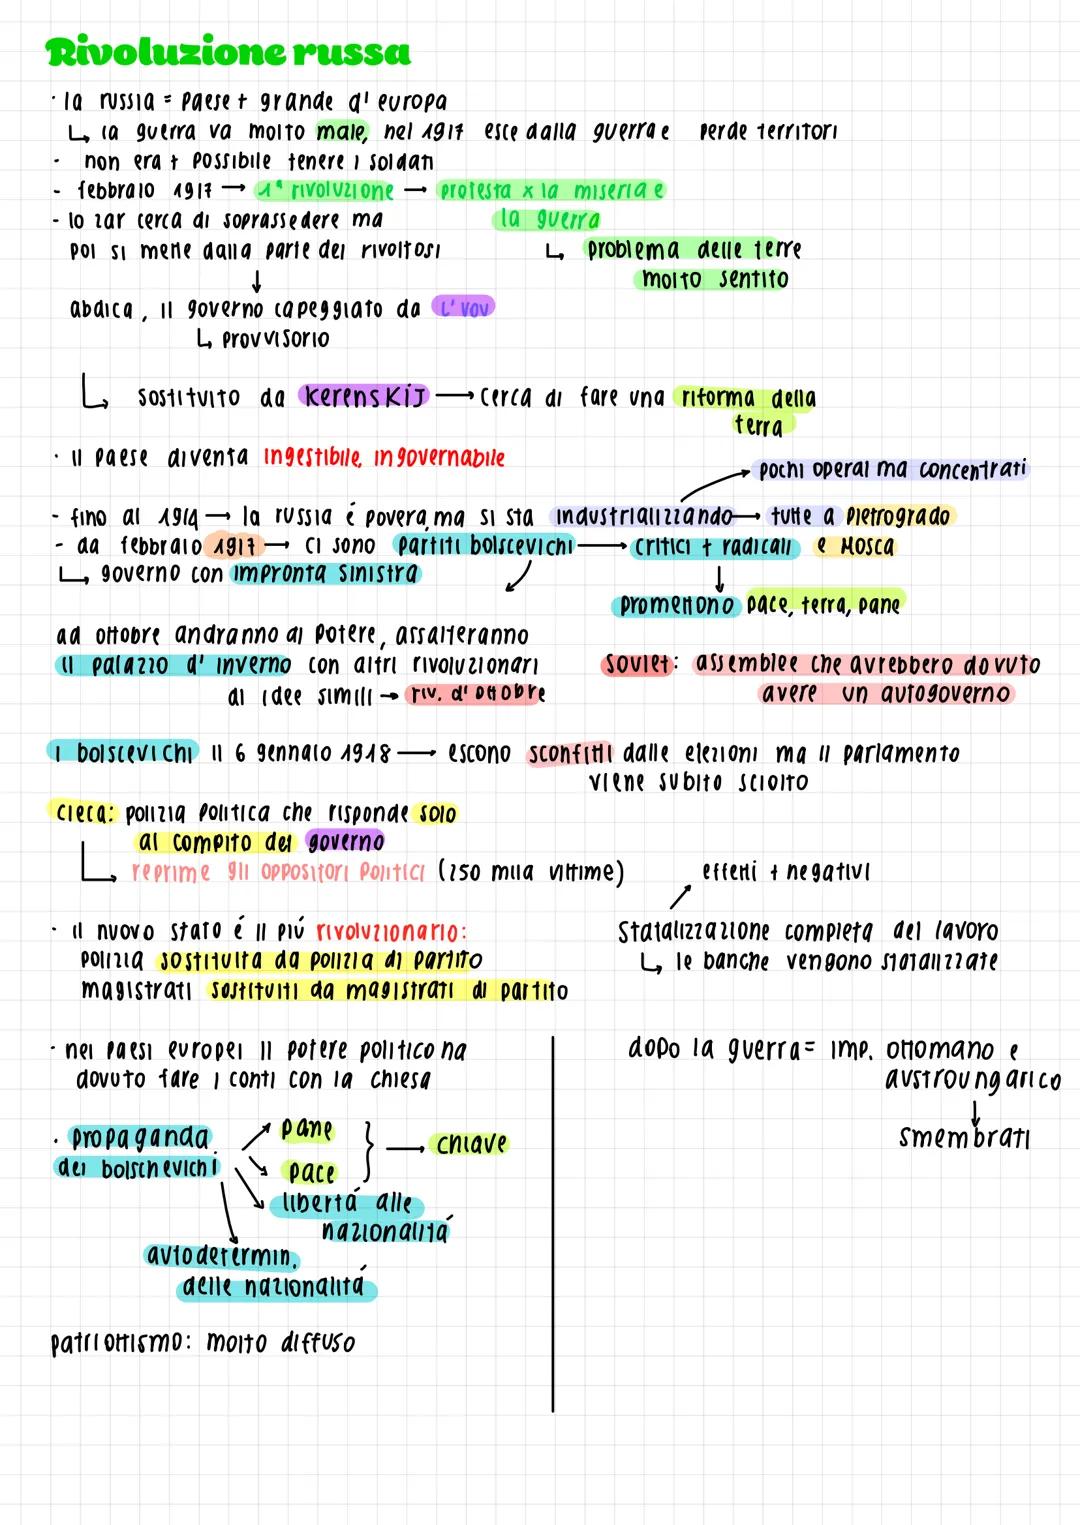 Rivoluzione russa
· la russia = paese + grande d' europa
↳ la guerra va molto male, nel 1917 esce dalla guerra e perde territori
- non era + possibile tenere i soldati
- febbraio 1917 → 1ª rivoluzione → protesta x la miseria e
la guerra
- lo zar cerca di soprassedere ma
poi si mette dalla parte dei rivoltosi
↳ problema delle terre
molto sentito
abdica, il governo capeggiato da L'vov
↳ provvisorio
sostituito da kerenskij → cerca di fare una riforma della
terra
· il paese diventa ingestibile, ingovernabile
pochi operai ma concentrati
- fino al 1914 → la russia é povera, ma si sta industrializzando → tutte a pietrogrado
e Mosca
- da febbraio 1917 → ci sono partiti bolscevichi → critici + radicali
↳ governo con impronta sinistra
promettono pace, terra, pane
ad ottobre andranno al potere, assalteranno
il palazzo d' inverno con altri rivoluzionari
di idee simili → riv. d' ottobre
soviet: assemblee che avrebbero dovuto
avere un autogoverno
i bolscevichi il 6 gennaio 1918 → escono sconfitti dalle elezioni ma il parlamento
viene subito sciolto
cieca: polizia politica che risponde solo
al compito del governo
↳ reprime gli oppositori politici (250 mila vittime)
effetti + negativi
Statalizzazione completa del lavoro
↳ le banche vengono statalizzate
· il nuovo stato é il piú rivoluzionario:
polizia sostituita da polizia di partito
magistrati sostituiti da magistrati di partito
· nei paesi europei il potere politico ha
dovuto fare i conti con la chiesa
· propaganda
dei bolschevichi
pane
pace
→ chiave
libertá alle
nazionalitá
autodetermin.
delle nazionalitá
patriottismo: molto diffuso
dopo la guerra = imp. ottomano e
austroungarico
smembrati